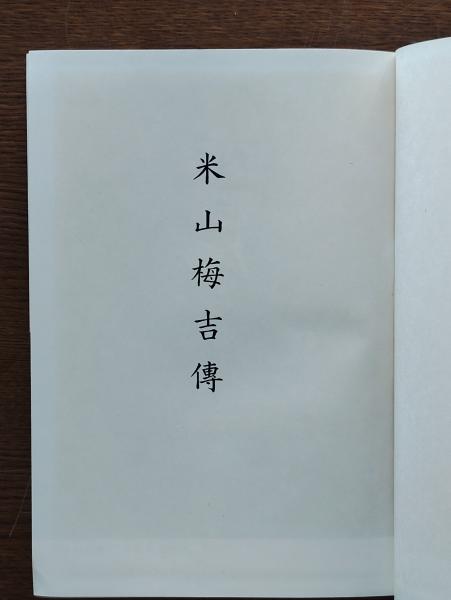 米山梅吉傳